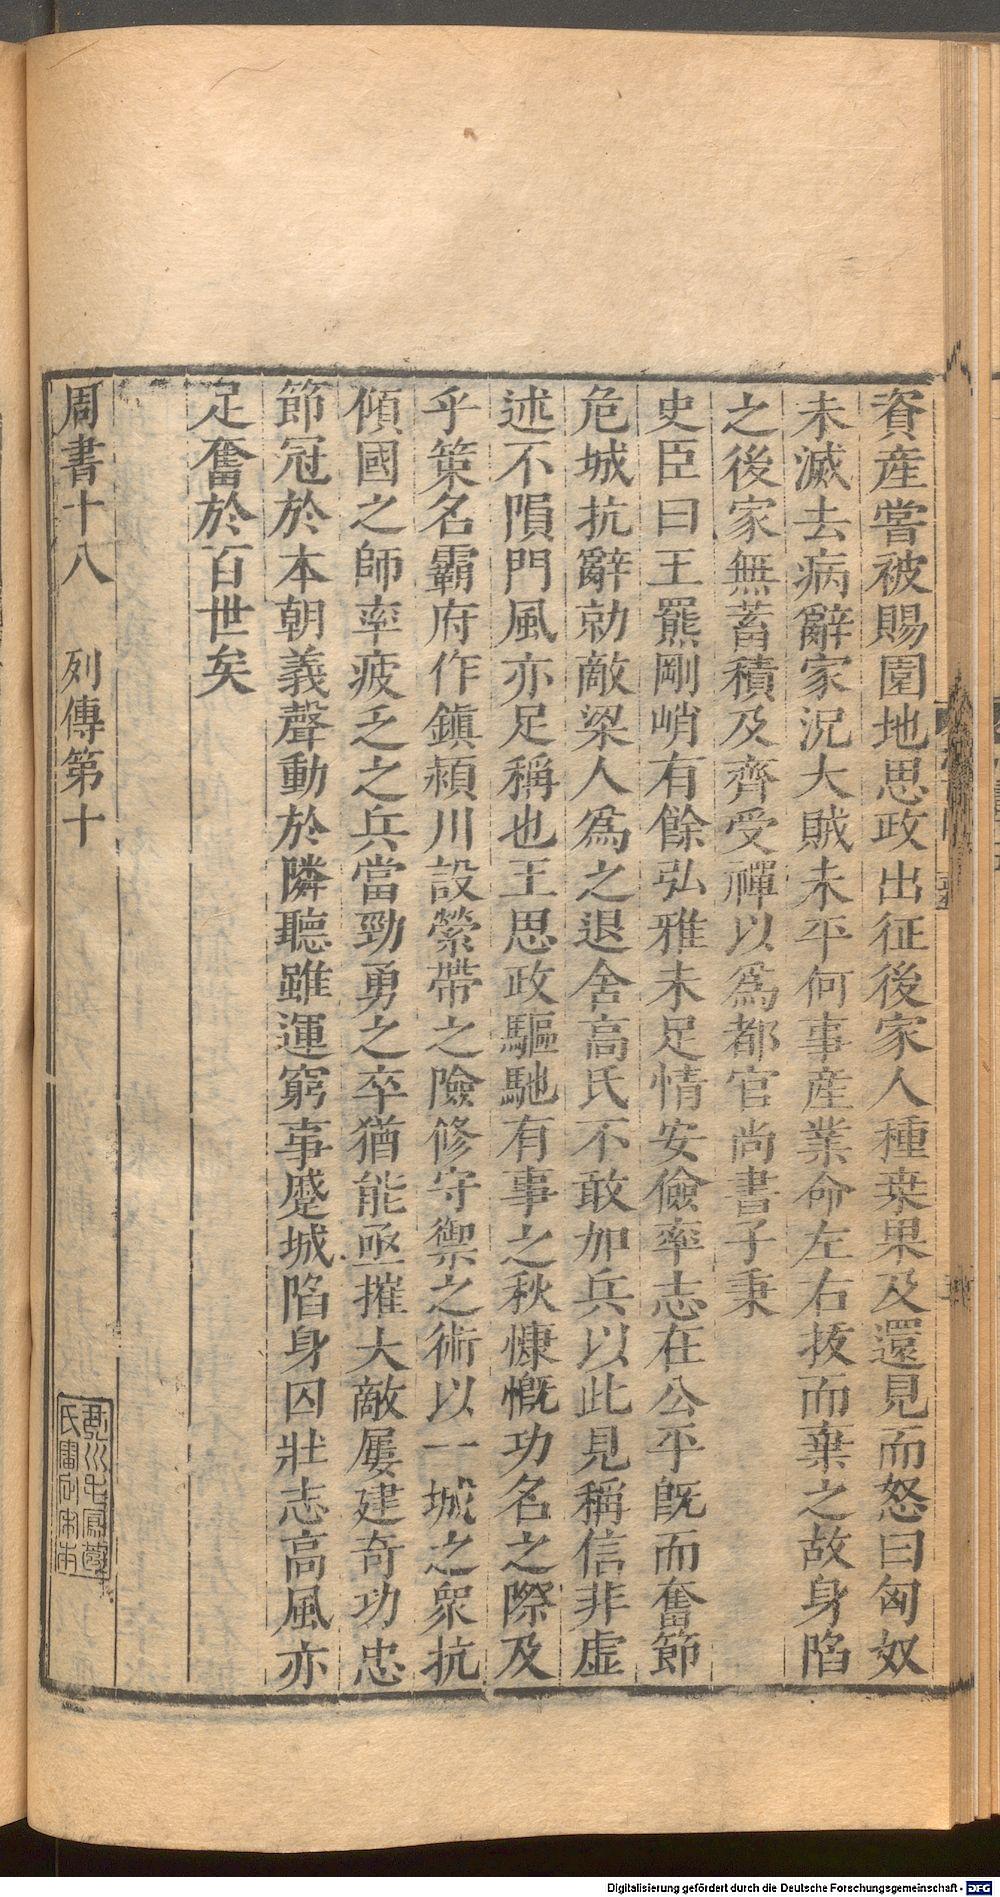 資産嘗被賜園地思政出征後家人種桒果及還見而怒曰匈奴
未滅去病辭家況大賊未平何事産業命左右拔而棄之故身陷
之後家無蓄積及齊受禪以爲都官尚書子秉
史臣曰王羆剛峭有餘弘雅未足情安儉率志在公平旣而奮節
危城抗辭勍敵梁人爲之退舍高氏不敢加兵以此見稱信非虛
述不隕門風亦足稱也王思政驅馳有事之秋慷慨功名之際及
乎策名霸府作鎭潁川設縈帶之險修守禦之術以一城之衆抗
傾國之師率疲乏之兵當勁勇之卒猶能亟摧大敵屢建奇功忠
節冠於本朝義聲動於隣聽雖運窮事蹙城陷身囚壯志高風亦
足奮於百世矣
周書十八 列傳第十
Digitalisierung gefördert durch die Deutsche Forschungsgemeinschaft - DFG